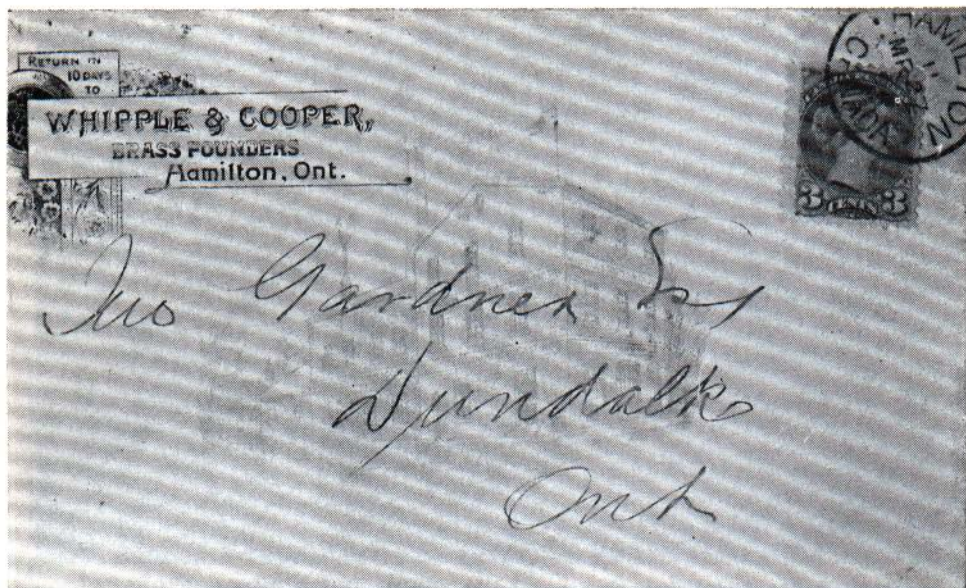 RETURN IN
10 DAYS
TO
WHIPPLE & COOPER,
BRASS FOUNDERS
Hamilton, Ont.
HAMILTON
11
MR 27
CANADA
3 CENTS 3
Jno Gardner Esq
Dundalk
Ont